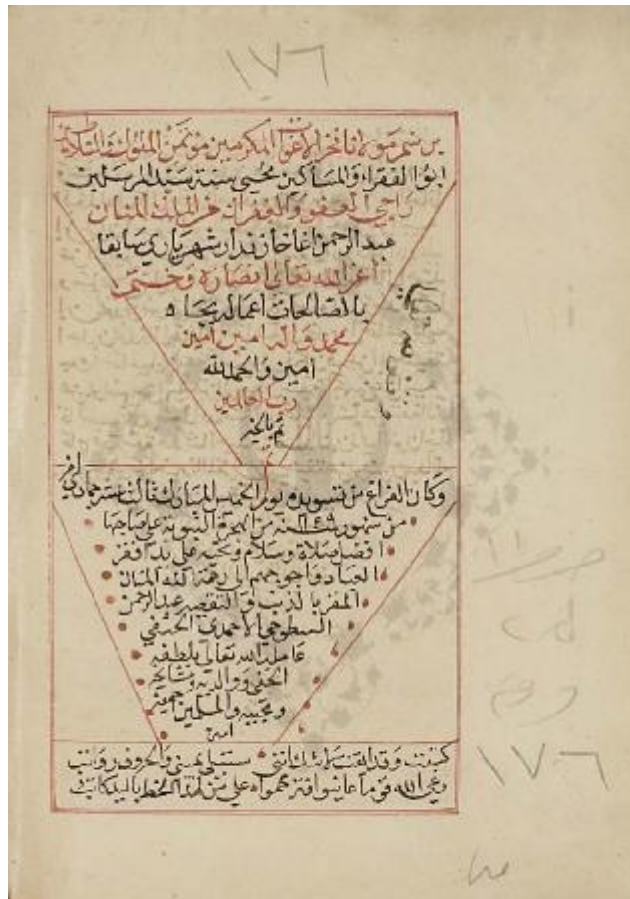 ١٧٦
برسم مولانا فخر الاغوات المكرمين مؤتمن الملوك والسلاطين
ابو الفقراء والمساكين محيي سنة سيد المرسلين
راجي العفو والغفران من الملك المنان
عبد الرحمن اغا خازندار شهرياري سابقا
اعز الله تعالى انصاره وختم
بالصالحات اعماله بجاه
محمد واله امين امين
امين والحمد لله
رب العالمين
تم بالخير
وكان الفراغ من تسويده يوم الخميس المبارك ثالث عشر جمادى
من شهور سنة من الهجرة النبوية على صاحبها
افضل صلاة وسلام وتحية على يد افقر
العباد واحوجهم الى رحمة الله المنان
المقر بالذنب والتقصير عبد الرحمن
السطوحي الاحمدي الحنفي
عامله الله تعالى بلطفه
الخفي ووالديه ومشايخه
ومحبيه والمسلمين اجمعين
امين
كتبت وقد ايقنت ستبلى يميني والحروف رواتب
قوما على من هذا الخط باليد كاتب
١٧٦